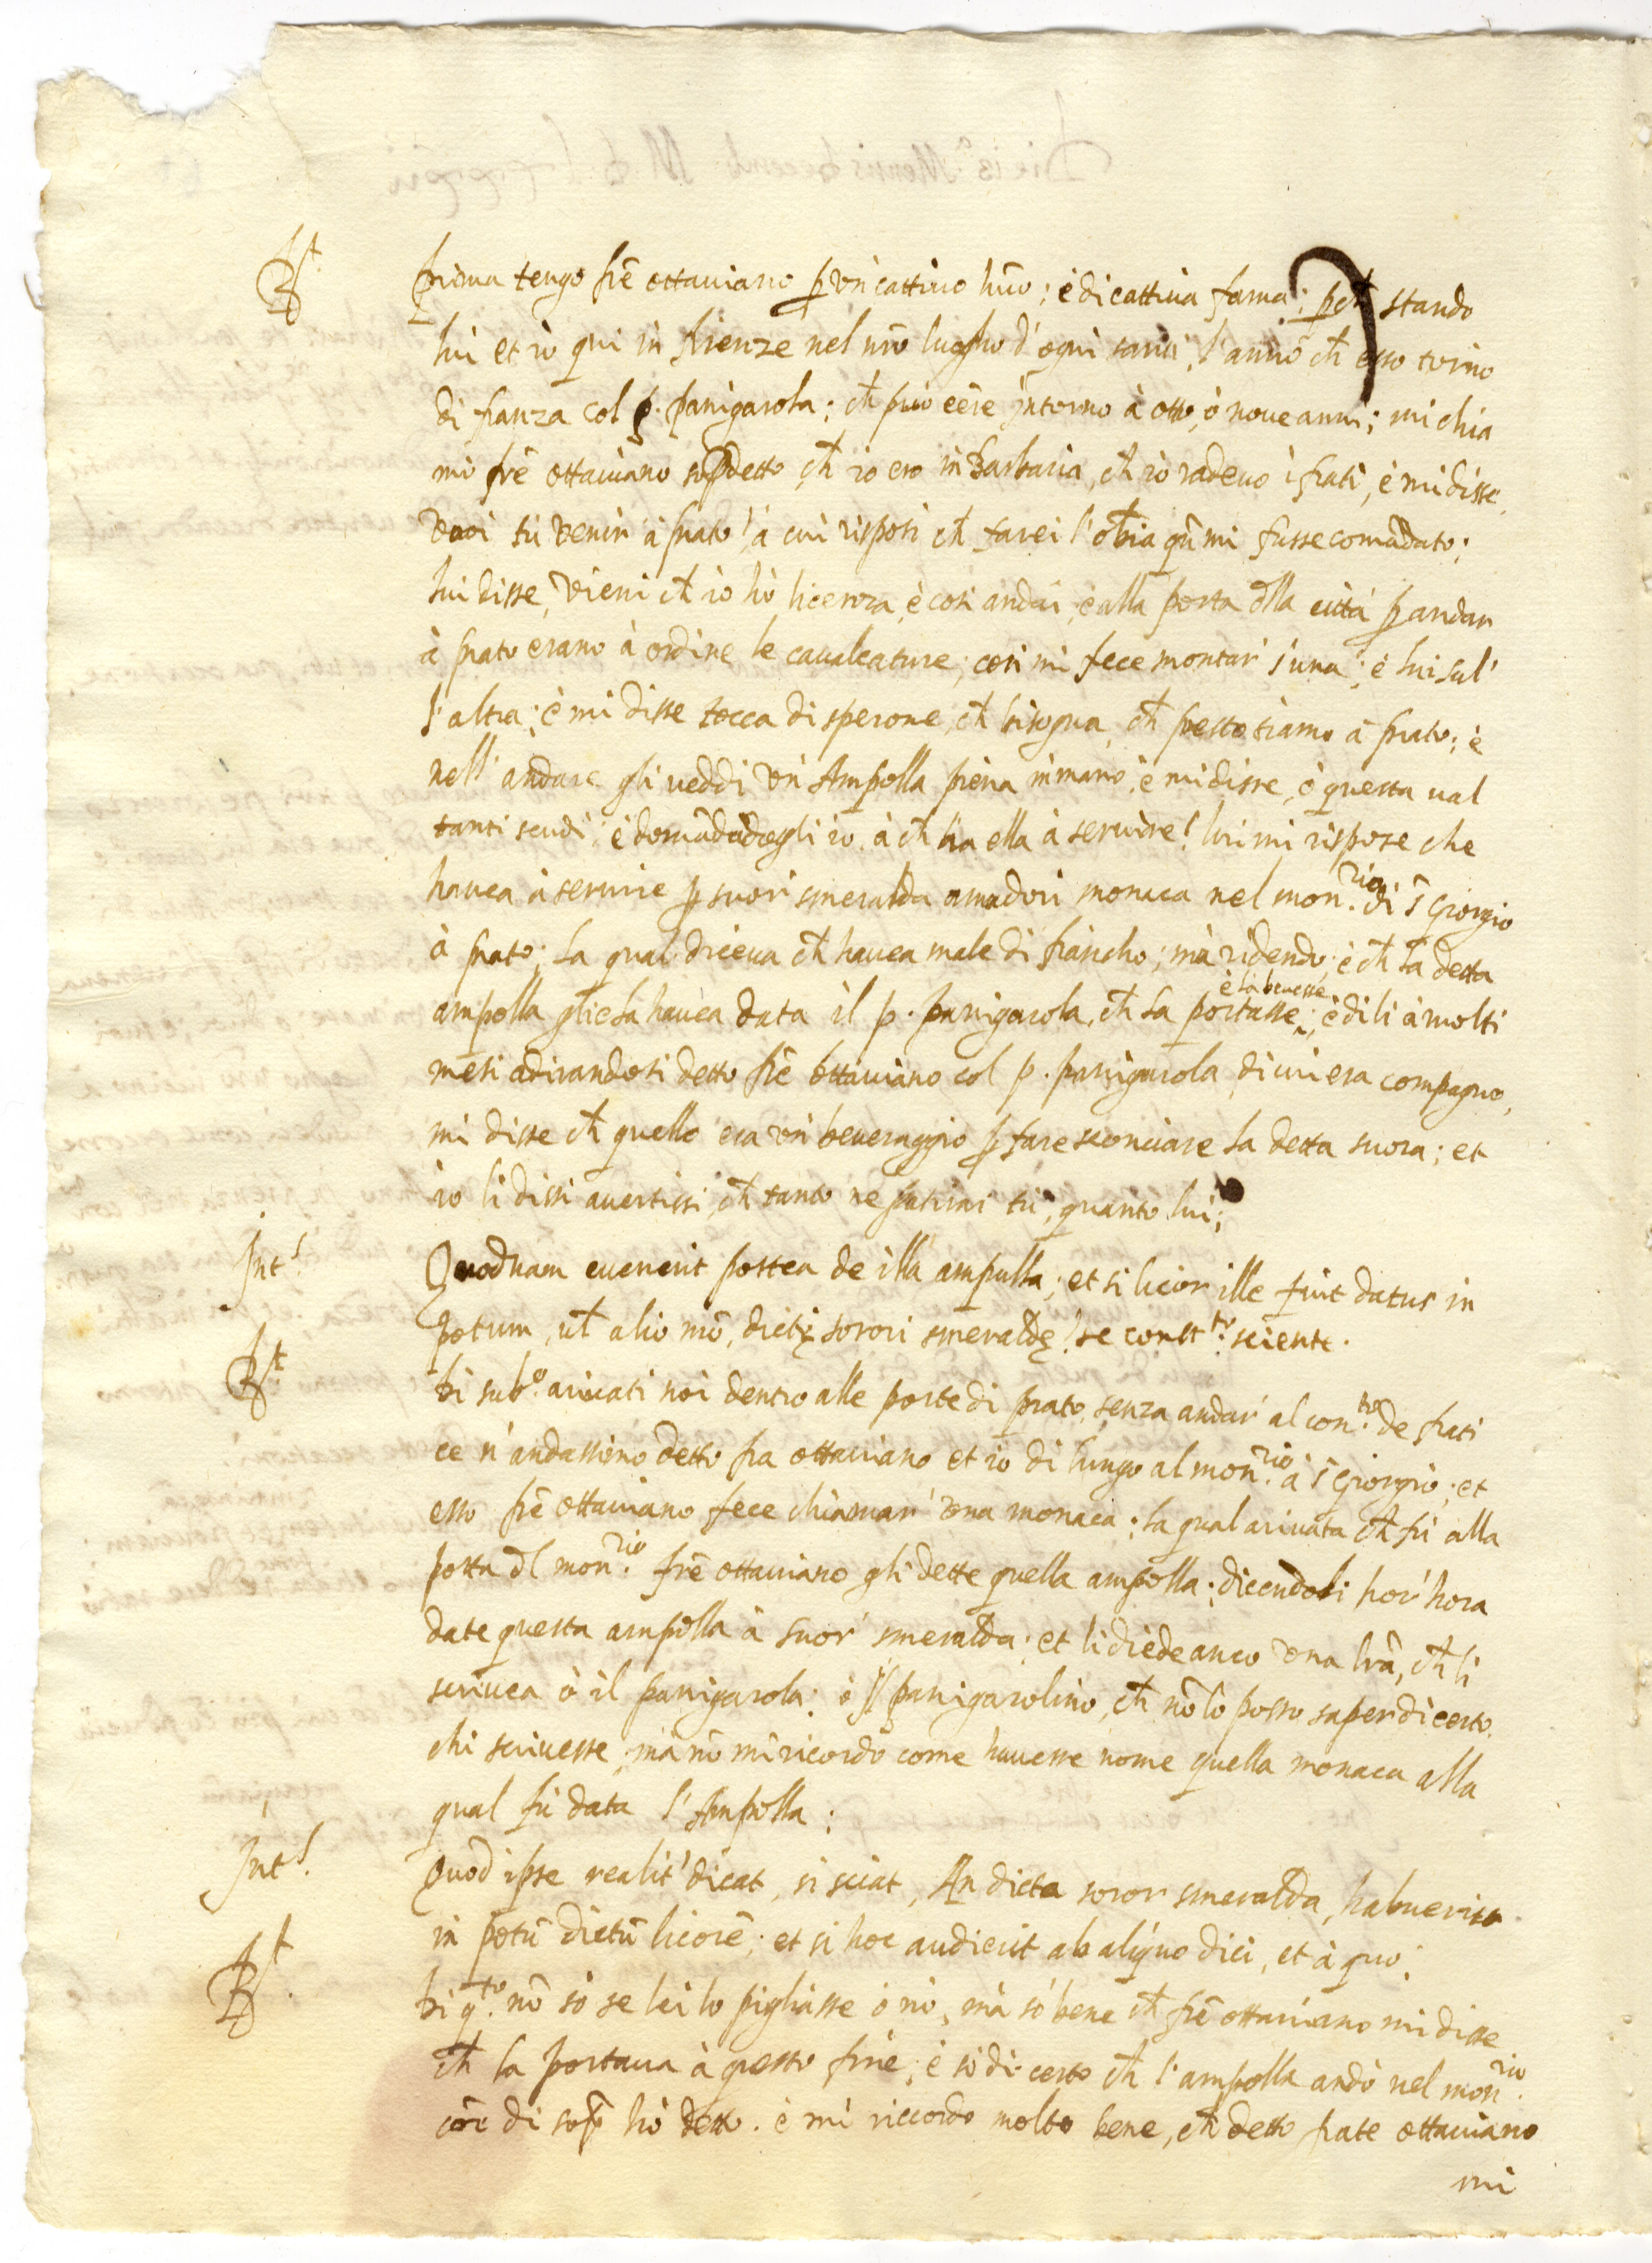 Rt. prima tengo frē ottauiano ꝑ un cattiuo huō; è di cattiua fama; pch̄ stando
lui et io qui in firenze nel nrō luogho d'ogni santi, l'anno ch̄ esso torno
di franza col p. panigarola; ch̄ puo eēre intorno à otto, ò noue anni; mi chia
mò frē ottauiano sopdetto, ch̄ io ero in Barbaria, ch̄ io radeuo i frati, è mi disse,
Vuoi tù venir à prato? à cui risposi ch̄ farei l'ob̄ia qn̄ mi fusse comādato;
lui disse, Vieni ch̄ io hò licenza, è cosi andai, è alla porta d̄lla città ꝑ andar
à prato erano à ordine le caualcature; cosi mi fece montar s'una; è lui sul'
l'altra; è mi disse tocca di sperone, ch̄ bisogna, ch̄ presto siamo à prato; è
nell' andare gli ueddi un Ampolla piena in mano, è mi disse, ò questa ual
tanti scudi; è domādādogli io, à ch̄ ha ella à seruire! lui mi rispose che
hauea à seruire ꝑ suor smeralda amadori monaca nel mon.rio di s̄ Giorgio
à prato; la qual diceua ch̄ hauea male di fiancho; mà ridendo; è ch̄ la detta
è la beuesse
ampolla glie la hauea data il p. panigarola, ch̄ la portasse; è di li à molti
mesi adirandosi detto frē ottauiano col p. panigarola, di cui era compagno,
mi disse ch̄ quello era un beueraggio ꝑ fare sconciare la detta suora; et
io li dissi auertissi, ch̄ tanto ne patirai tù, quanto lui;
Int.s Quodnam euenerit postea de illa ampulla; et si licor ille fuit datus in
potum, ul̄ alio mō, dictę sorori smeraldę! se const.to sciente.
Rt. Di sub.o ariuati noi dentro alle porte di prato, senza andar' al con.to de frati
ce n'andassimo detto fra ottauiano et io di lungo al mon.rio à s̄ Giorgio; et
esso frē ottauiano fece chiamar' una monaca; la qual ariuata ch̄ fù alla
porta d̄l mon.rio frē ottauiano gli dette quella ampolla; dicendoli hor' hora
date questa ampolla à suor' smeralda; et li diede anco una lrā, ch̄ li
scriuea ò il panigarola; ò il panigarolino, ch̄ nō lo posso saper di certo
chi scriuesse, mà nō mi ricordo come hauesse nome quella monaca alla
qual fù data l'Ampolla;
Int.s Quod ipse realit' dicat, si sciat, An dicta soror smeralda, habuerit
in potū dictū licorē; et si hoc audierit ab aliquo dici, et à quo;
Rt. Di q.to nō sò se lei lo pigliasse ò nò, mà sò bene ch̄ frē ottauiano mi disse
ch̄ la portaua à questo fine; è sò di certo ch̄ l'ampolla andò nel mon.rio
coē di sop̄ hò detto. è mi riccordo molto bene, ch̄ detto frate ottauiano
mi